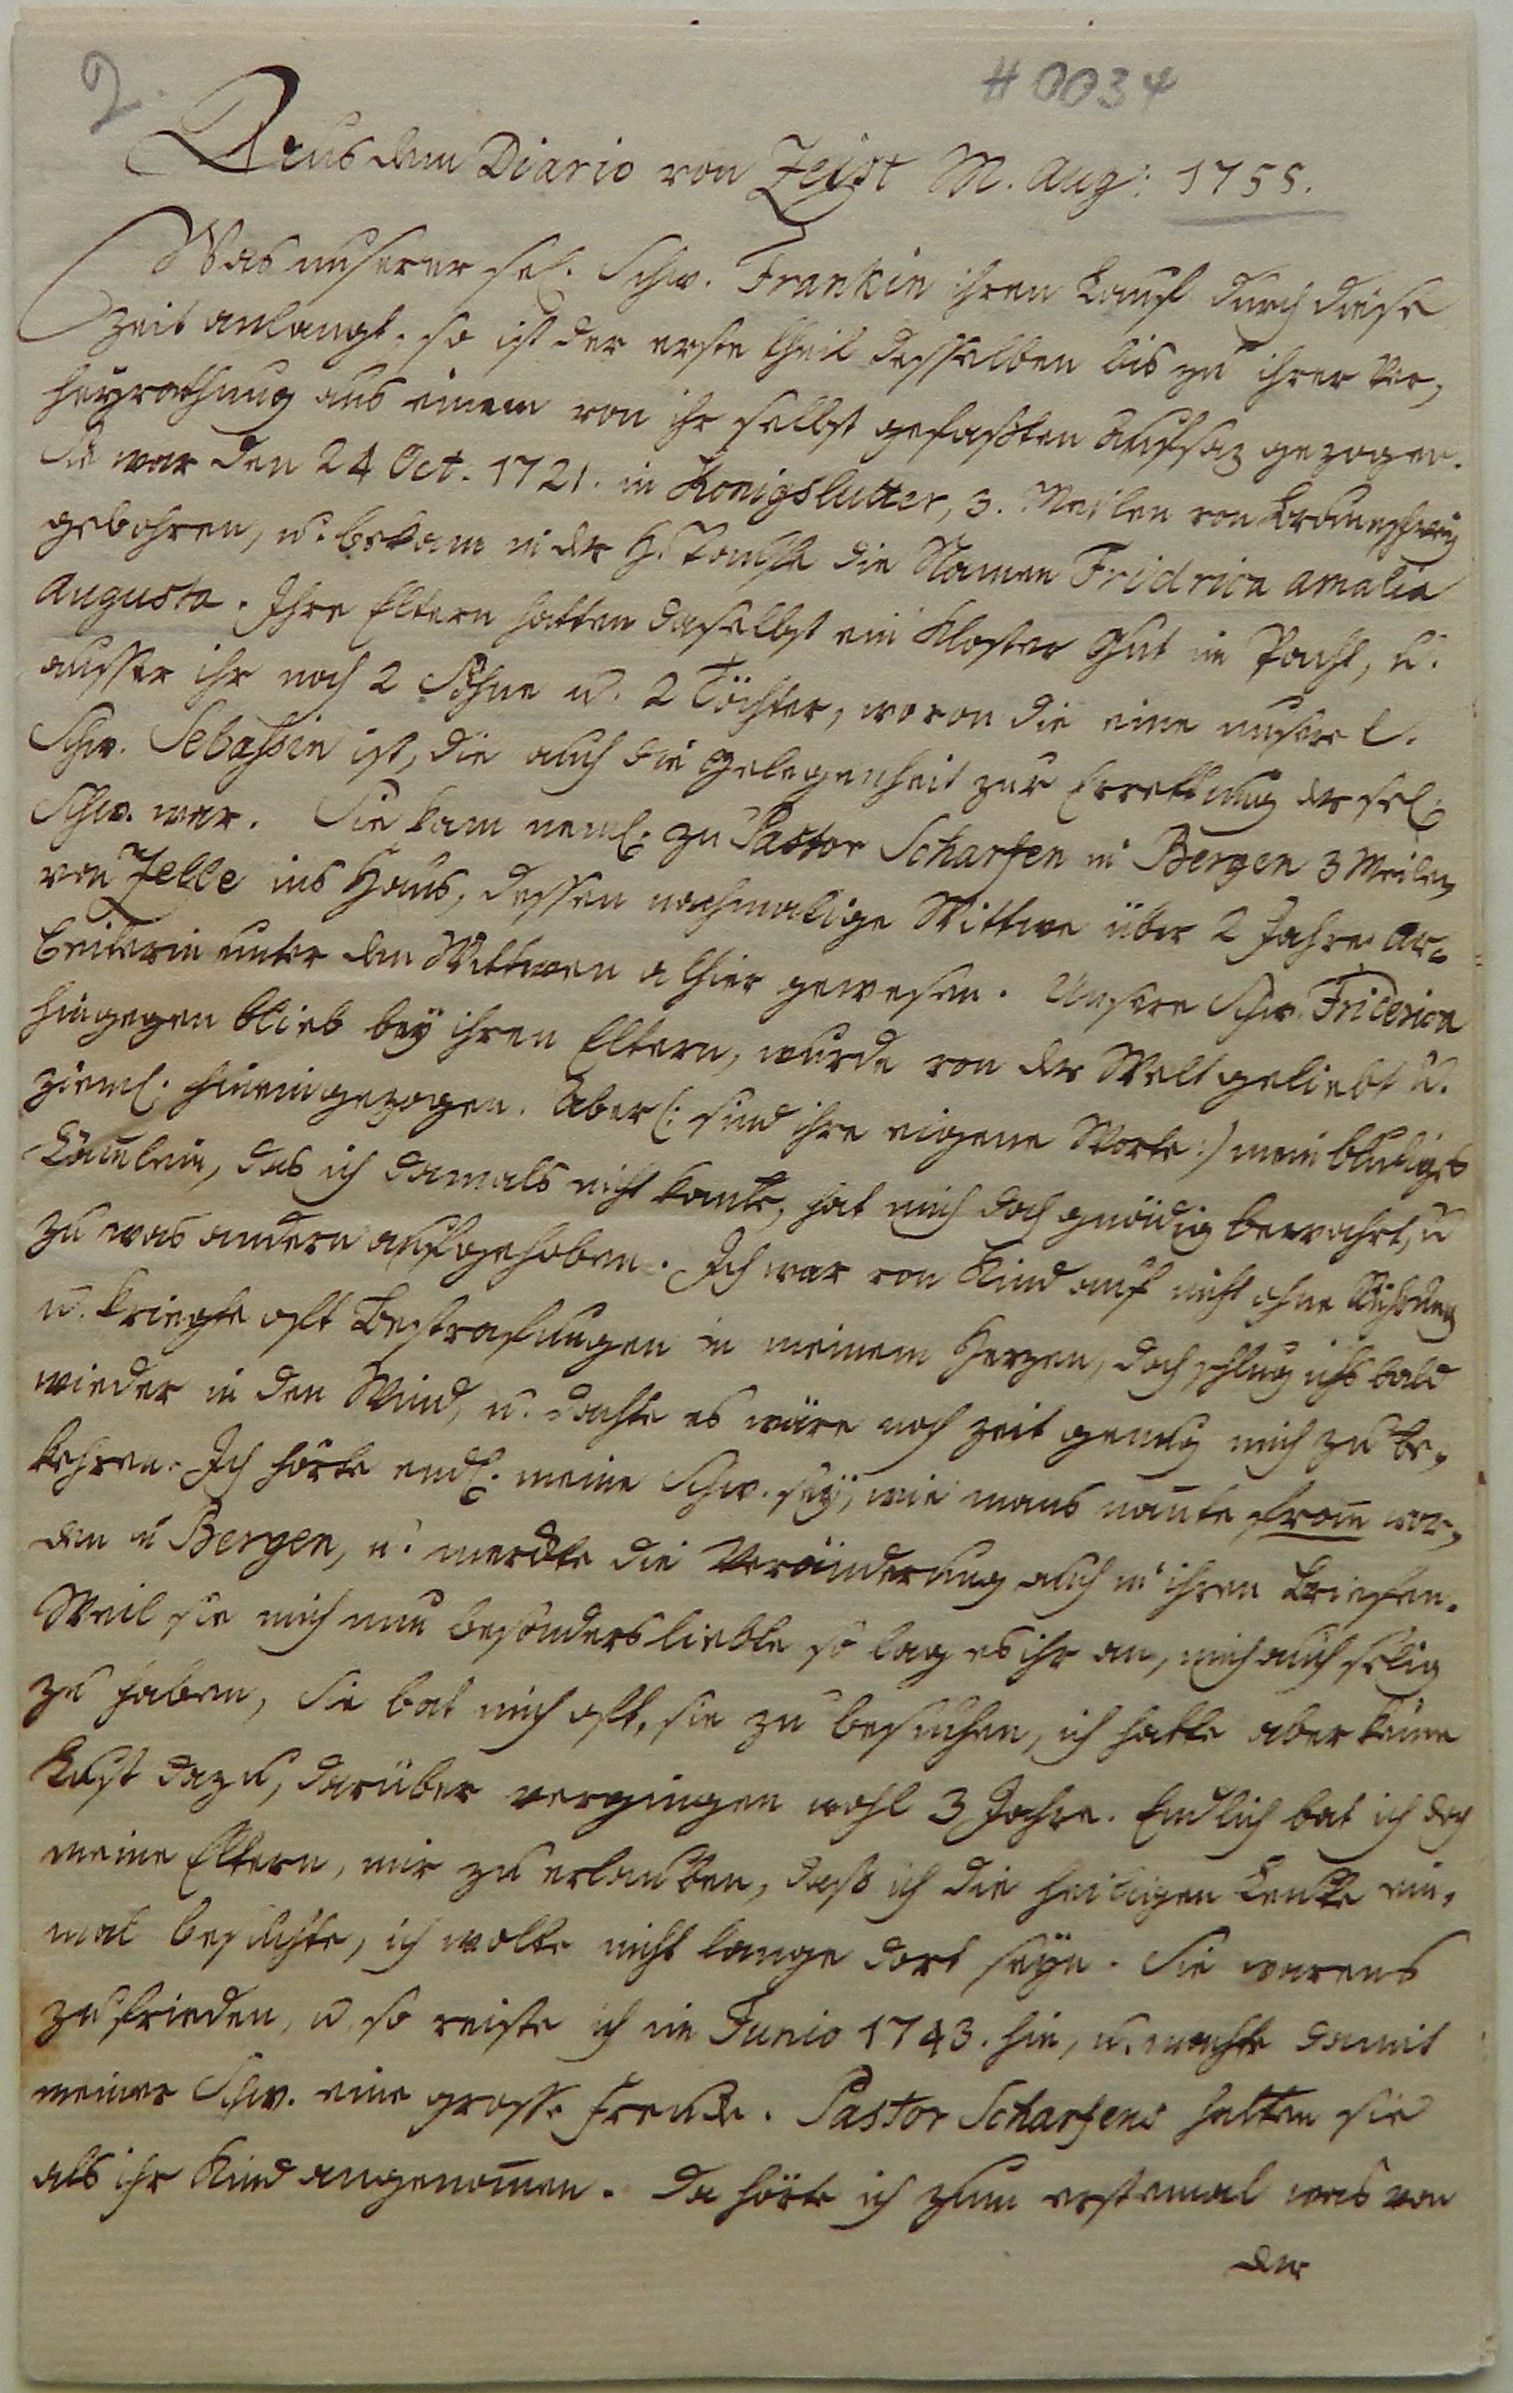 2.
# 0034
Aus dem Diario von Zeist M. Aug: 1755.
Was unserer sel. Schw. Frankin ihren Lauf durch diese
Zeit anlangt, so ist der erste theil desselben bis zu ihrer Ver,
heyrathung aus einem von ihr selbst gefaßten Aufsaz gezogen.
Sie war den 24 Oct. 1721. in Konigslutter, 3. Meilen von Braunschweig
gebohren, u. bekam in der H. Tauffe die Namen Fridrica Amalia
Augusta. Ihre Eltern hatten daselbst ein Kloster Gut in Pacht, u.
ausser ihr noch 2 Söhne u. 2 Töchter, wovon die eine unsere l.
Schw. Sebassin ist, die auch die Gelegenheit zur Errettung der sel.
Schw. war. Sie kam neml. zu Pastor Scharfen in Bergen 3 Meilen
von Zelle ins Haus, dessen nachmalige Wittwe über 2 Jahre Ar=
beiterin unter den Wittwen alhier gewesen. Unsere Schw. Friderica
hingegen blieb bey ihren Eltern, wurde von der Welt geliebt u.
zieml. hineingezogen. Aber (: sind ihre eigene Worte :) mein blutiges
Lämlein, das ich damals nicht kante, hat mich doch gnädig bewahrt, u
zu was andern aufgehoben. Ich war von Kind auf nicht ohne Rührung
u. kriegte oft Bestrafungen in meinem Herzen, doch schlug ichs bald
wieder in den Wind, u. dachte es wäre noch Zeit genug mich zu be,
kehren. Ich hörte endl. meine Schw. sey, wie mans nante from wor,
den in Bergen, u. merckte die Veränderung auch in ihren Briefen.
Weil sie mich nun besonders liebte so lag es ihr an, mich auch selig
zu haben, sie bat mich oft, sie zu besuchen, ich hatte aber keine
Lust dazu, darüber vergingen wohl 3 Jahre. Endlich bat ich doch
meine Eltern, mir zu erlauben, daß ich die heiligen Leute ein,
mal besuchte, ich wolte nicht lange dort seyn. Sie warens
zufrieden, u. so reiste ich in Junio 1743. hin, u. machte damit
meiner Schw. eine grosse Freude. Pastor Scharfens hatten sie
als ihr Kind angenomen. Da hörte ich zum erstenmal was von
der